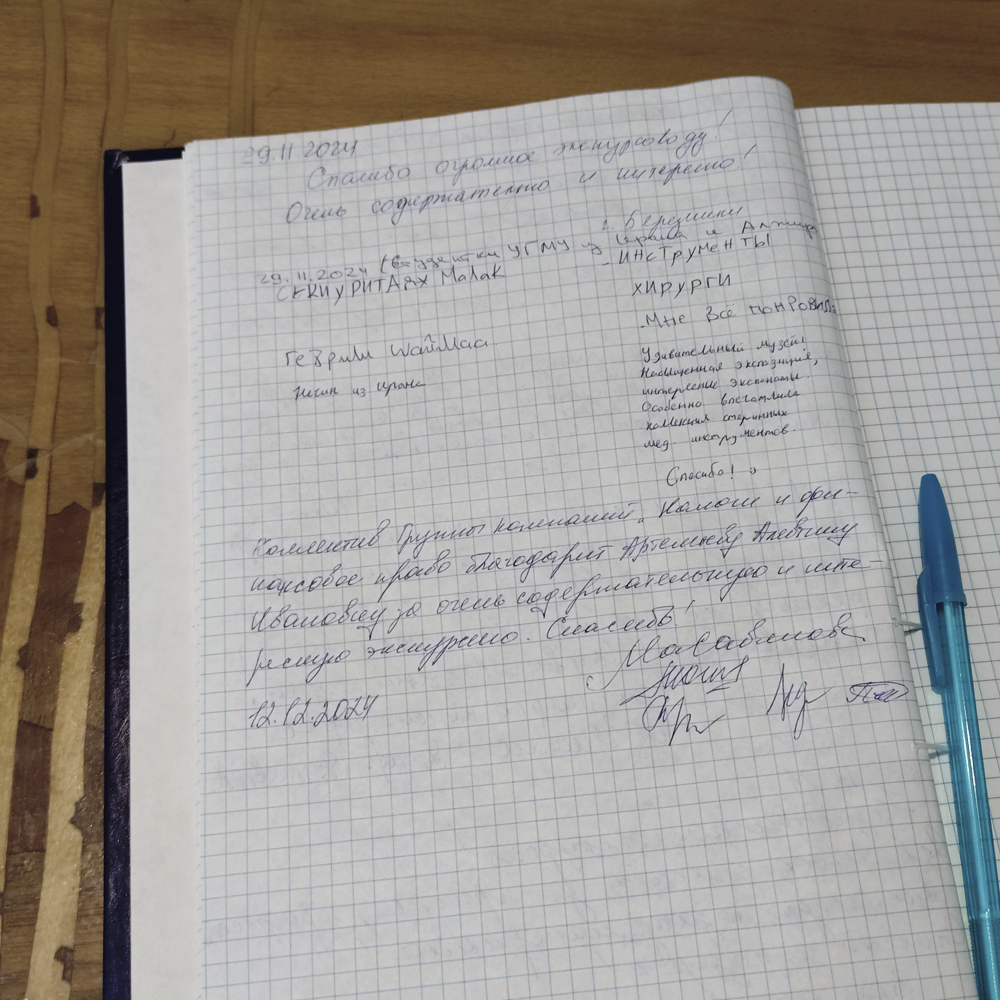 29.11.2024
Спасибо огромное экскурсоводу!
Очень содержательно и интересно!
г. Березники
29.11.2024 (Студентки УГМУ из Ирака и Алжира
СЕКИУРИТАдХ Malak
- ИНСТРУМеНТЫ
ХИРУРГИ
.Мне Всё
из
Удивительный музей!
Насыщенная экспозиция,
интересные экспонаты
Особенно впечатлила
коллекция старинных
мед. инструментов.
Спасибо!
Коллектив Группы компаний „Налоги и фи-
нансовое право благодарит Артемьеву Алевтину
Ивановну за очень содержательную и инте-
ресную экскурсию. Спасибо!
12.12.2024